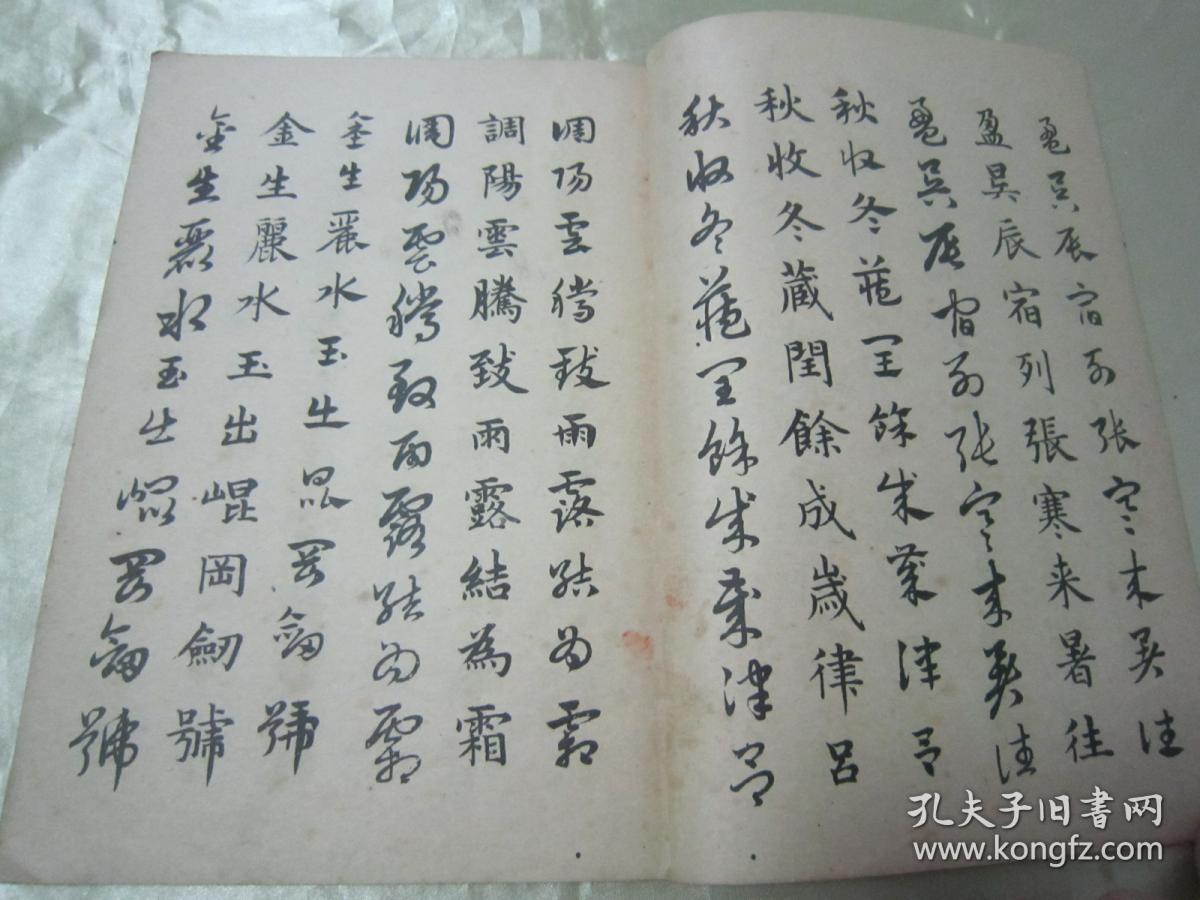 盈昃辰宿列张寒来暑往
盈昃辰宿列張寒来暑往
盈昃辰宿列张寒来暑往
秋収冬蔵閏餘成歲律呂
秋收冬藏閏餘成歲律呂
秋収冬蔵閏餘成歲律呂
調陽雲騰致雨露結為霜
調陽雲騰致雨露結為霜
調陽雲騰致雨露結為霜
金生麗水玉出昆岡劔號
金生麗水玉出崐岡劔號
金生麗水玉出崐岡劔號
孔夫子旧书网
www.kongfz.com